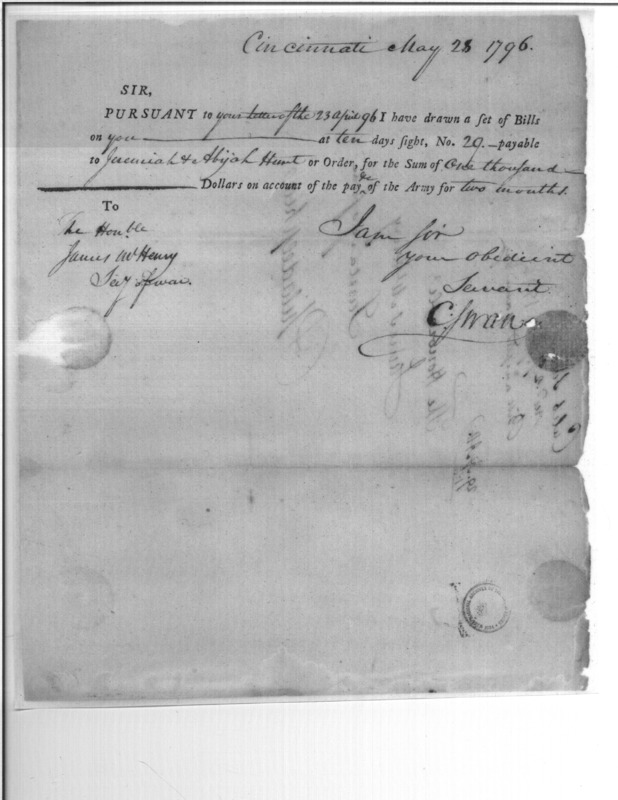 Cincinnati May 28 1796.
SIR,
PURSUANT to your letter of the 23 april 96 I have drawn a set of Bills
on you at ten days sight, No. 29.—payable
to Jeremiah & Abijah Hunt or Order, for the Sum of One thousand—
Dollars on account of the pay &c of the Army for two months.
To
The Honble
James McHenry
Secy of war.
I am sir
your obedient
Servant
C. Swan